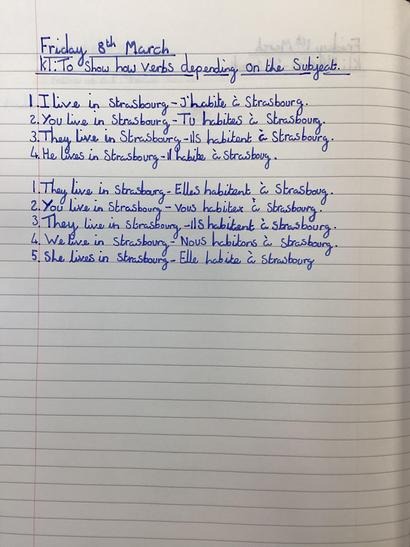 Friday 8th March
KI: To show how verbs depending on the Subject.
1. I live in Strasbourg - J'habite à Strasbourg.
2. You live in Strasbourg - Tu habites à Strasbourg.
3. They live in Strasbourg - ils habitent à Strasbourg.
4. He lives in Strasbourg - il habite à Strasboug.
1. They live in Strasbourg - Elles habitent à Strasboug.
2. You live in Strasbourg - Vous habitez à Strasbourg.
3. They live in Strasbourg - ils habitent à Strasbourg.
4. We live in Strasbourg - Nous habitons à Strasbourg.
5. She lives in Strasbourg - Elle habite à Strasbourg